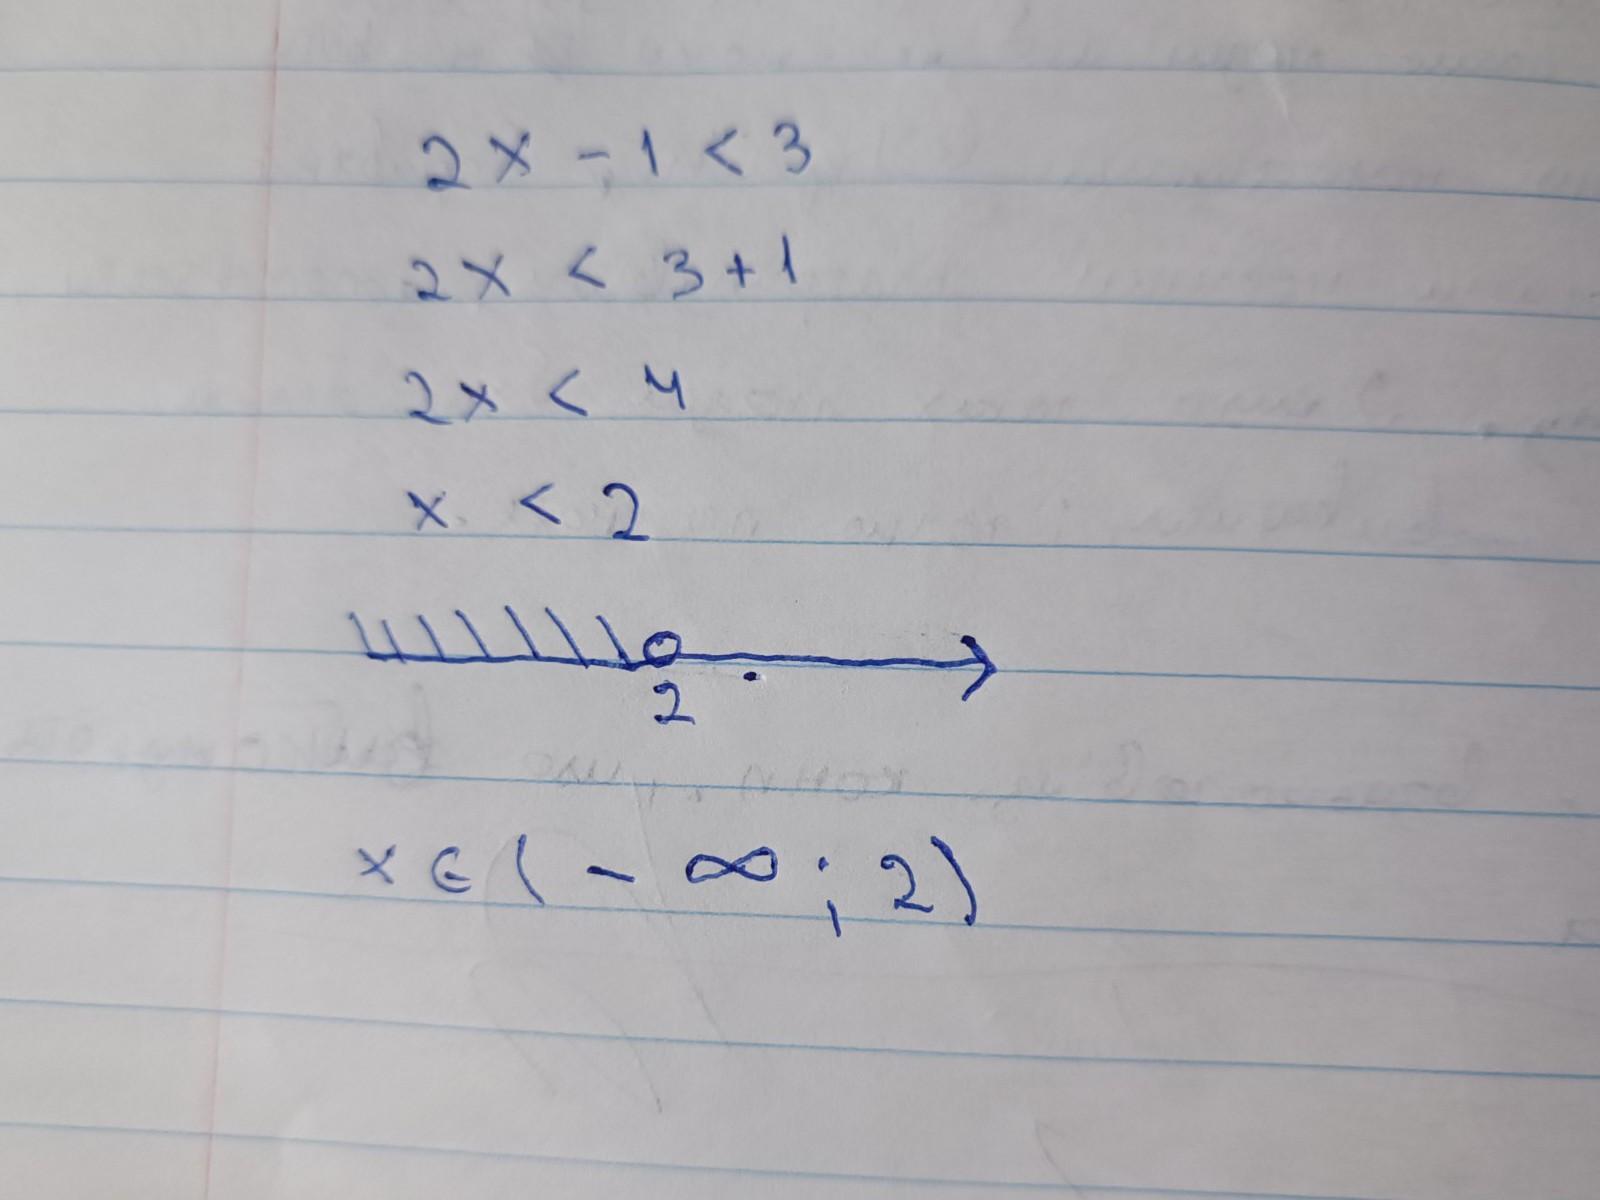 2x - 1 < 3
2x < 3 + 1
2x < 4
x < 2
2
x ∈ (- ∞ ; 2)